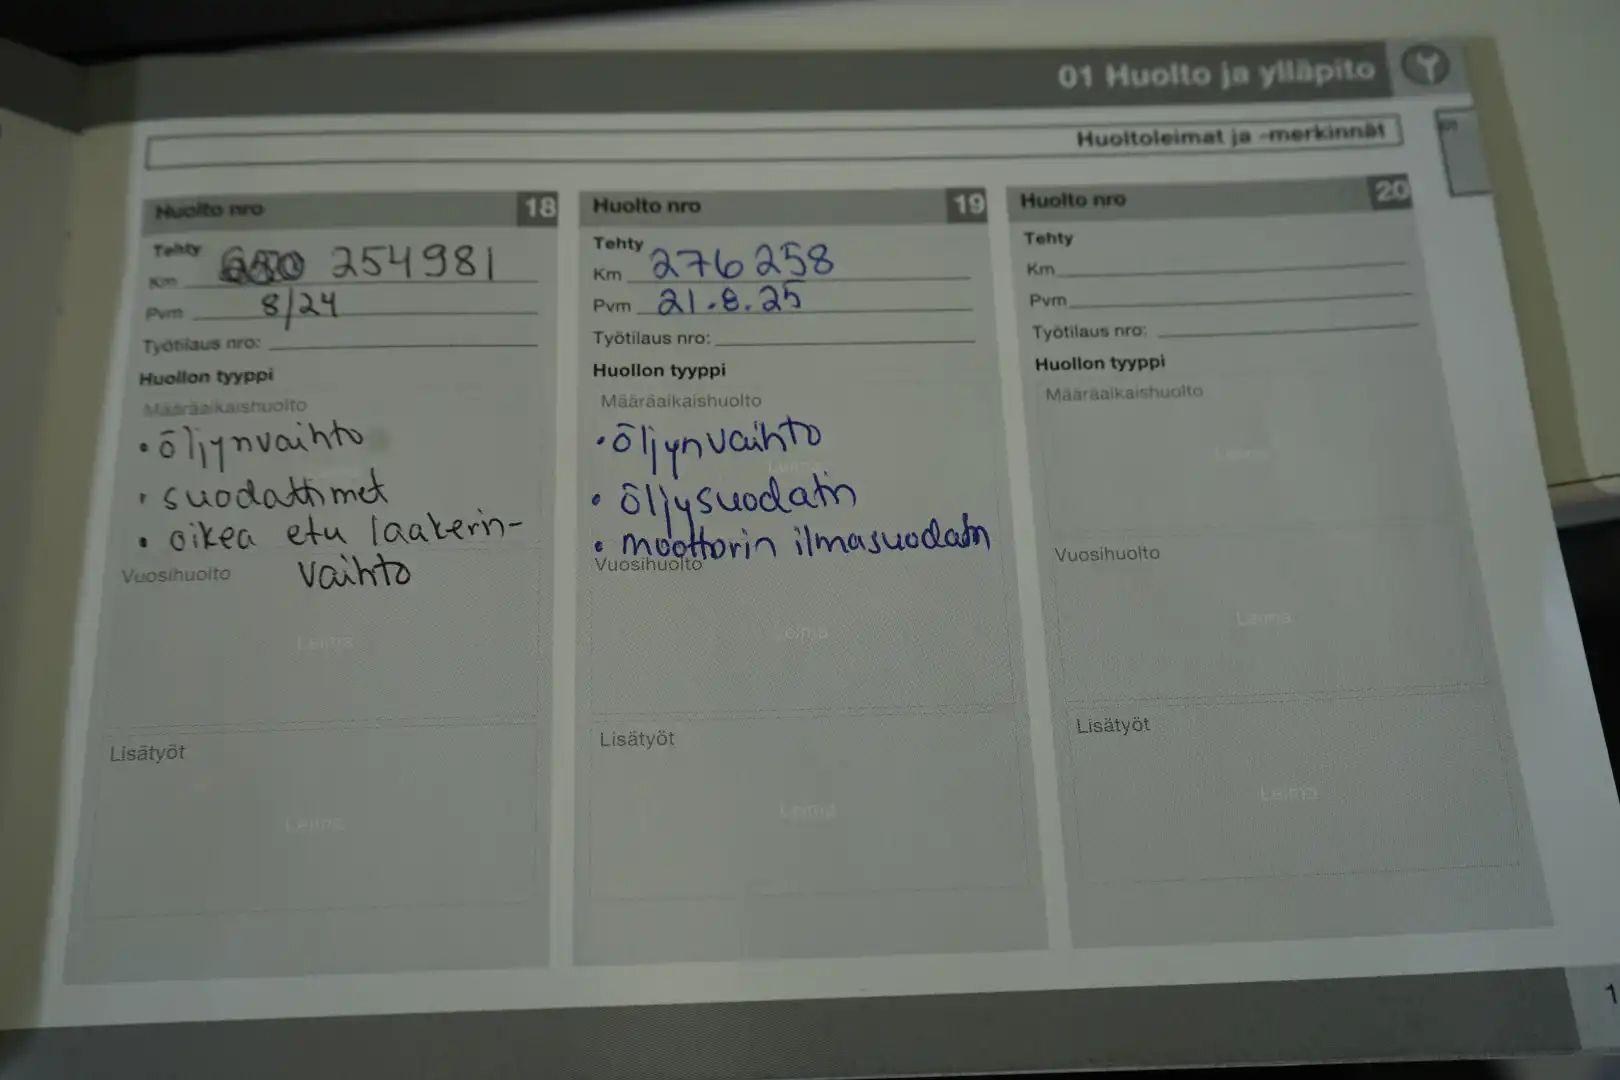 01 Huolto ja ylläpito
Huoltoleimat ja -merkinnät
Huolto nro 18
Tehty
Km 254981
Pvm 8/24
Työtilaus nro:
Huollon tyyppi
Määräaikaishuolto
• öljynvaihto
• suodattimet
• oikea etu laakerin-
vaihto
Vuosihuolto
Leima
Lisätyöt
Leima
Huolto nro 19
Tehty
Km 276258
Pvm 21.8.25
Työtilaus nro:
Huollon tyyppi
Määräaikaishuolto
Leima
• öljynvaihto
• öljysuodatin
• moottorin ilmasuodatin
Vuosihuolto
Leima
Lisätyöt
Leima
Huolto nro 20
Tehty
Km
Pvm
Työtilaus nro:
Huollon tyyppi
Määräaikaishuolto
Leima
Vuosihuolto
Leima
Lisätyöt
Leima